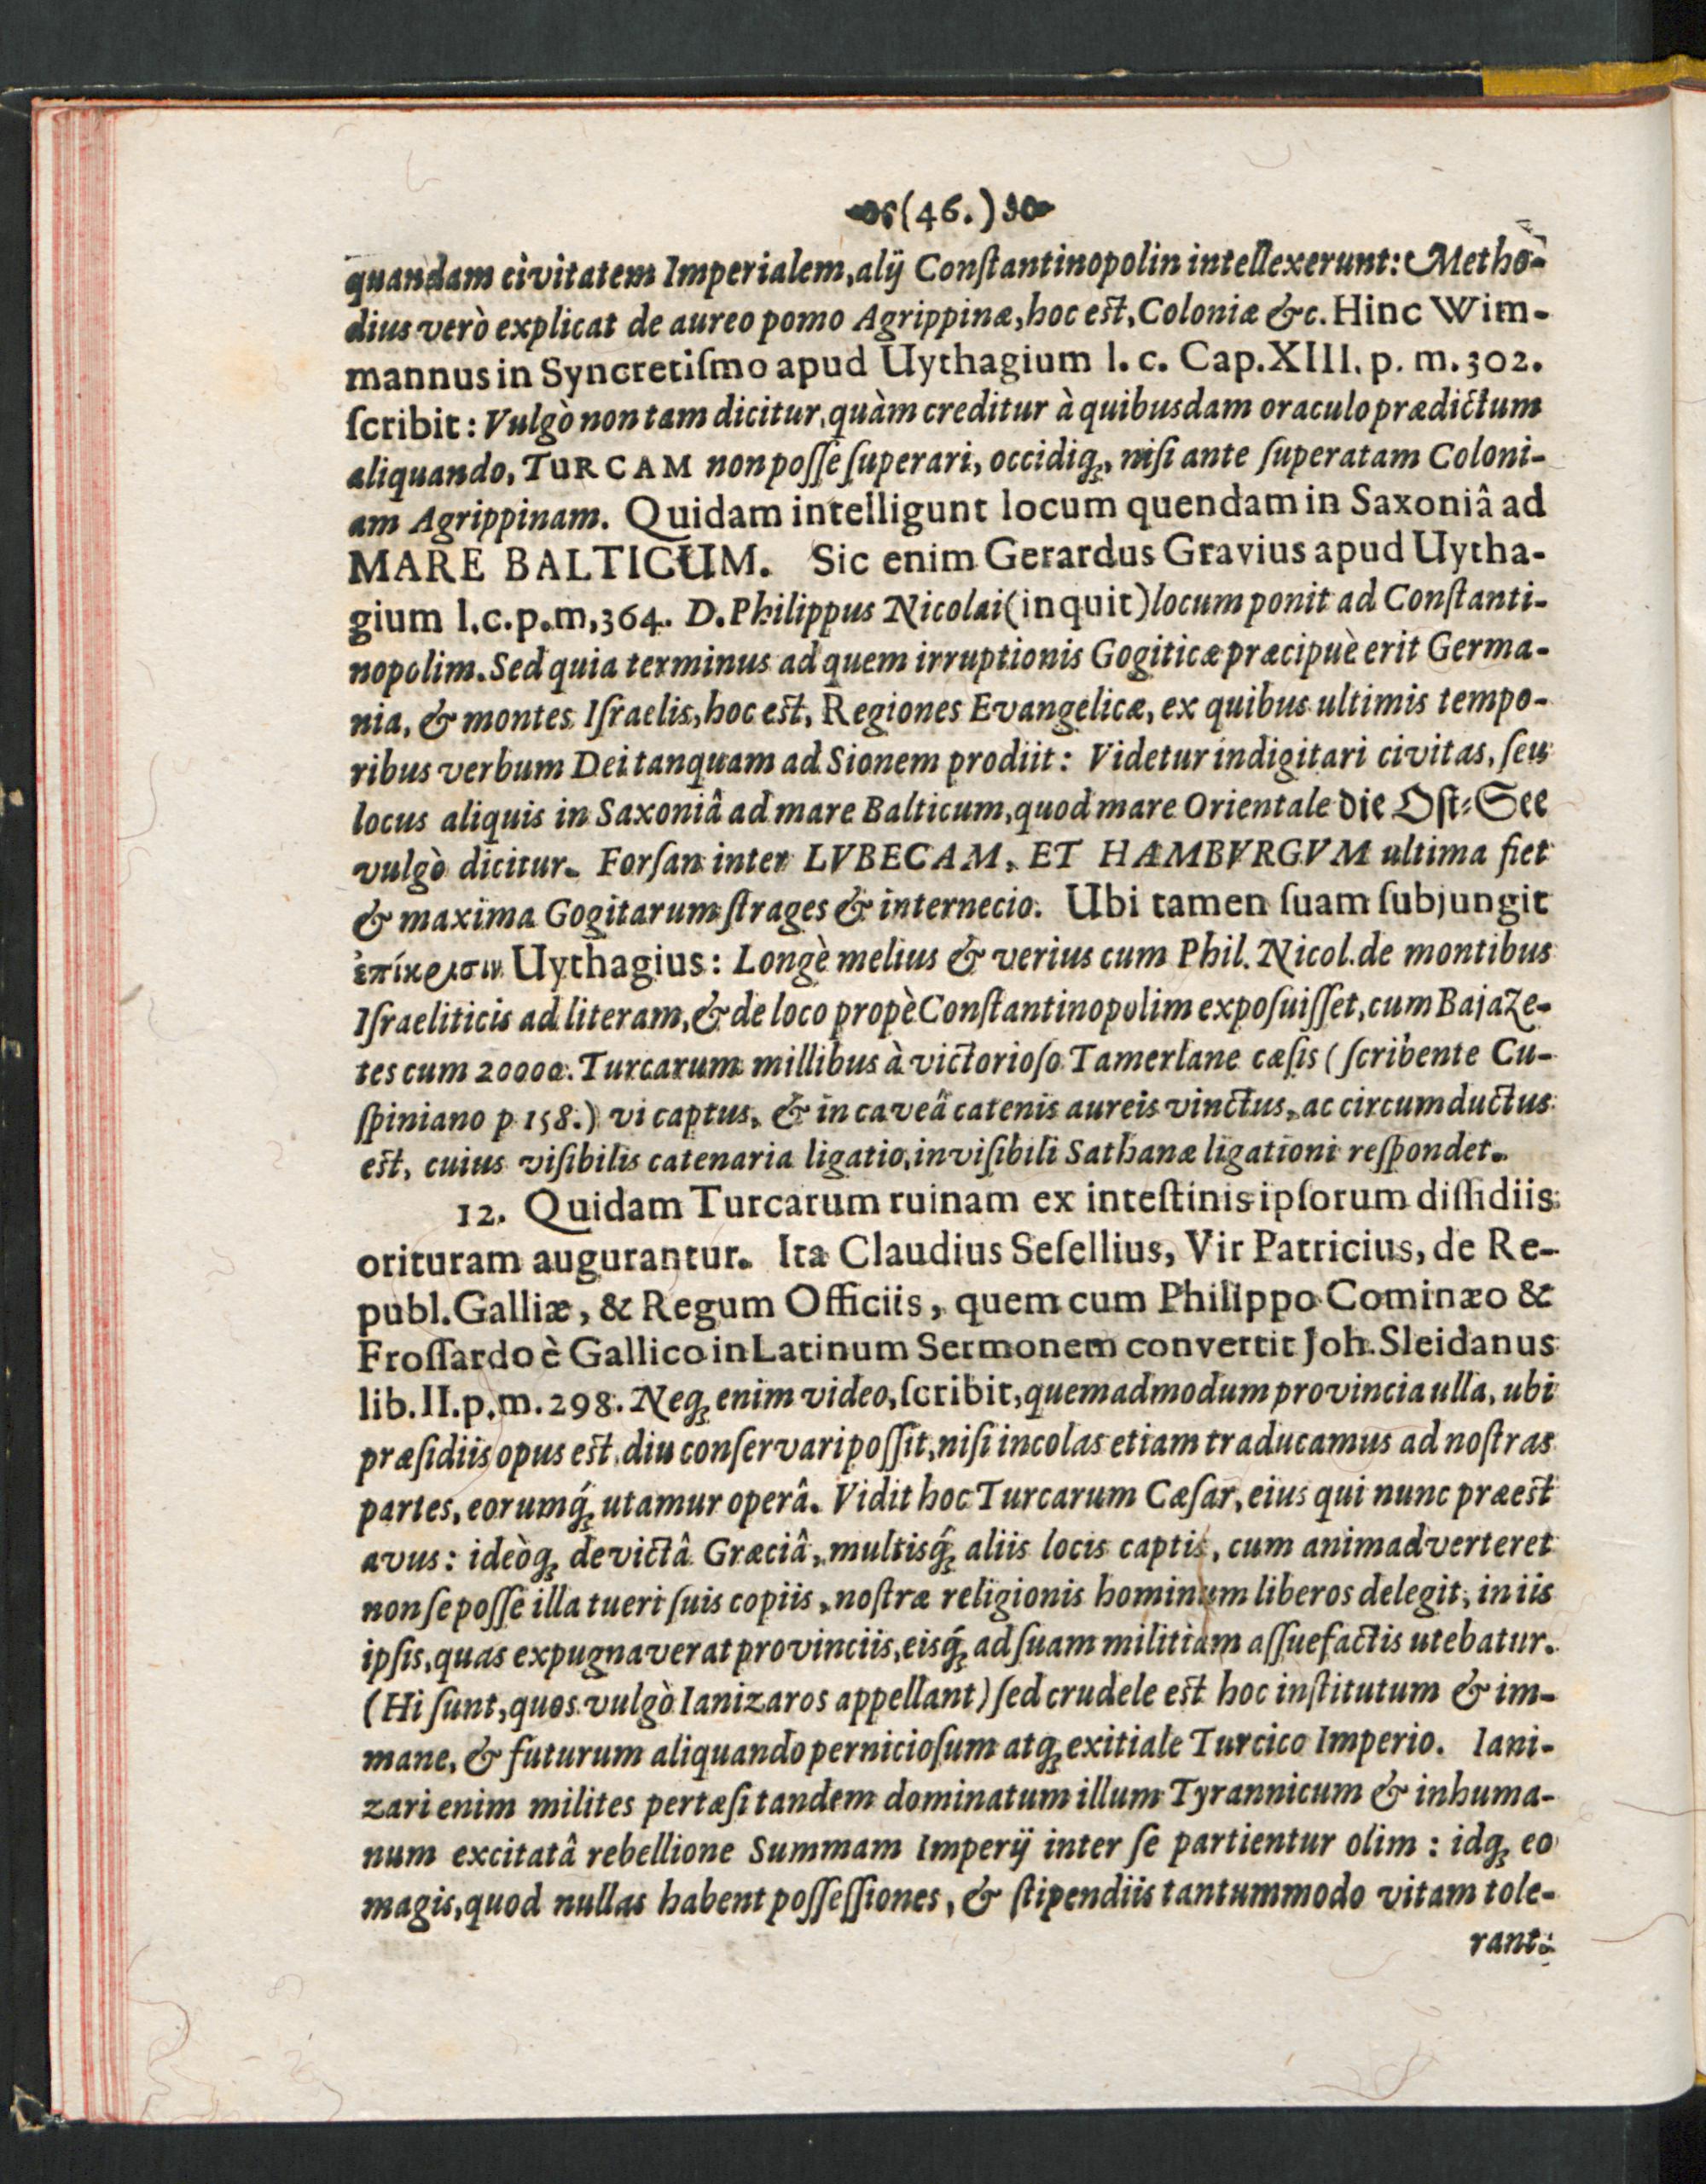 (46.)
quandam civitatem Imperialem, alij Conſtantinopolin intellexerunt: Metho-
dius verò explicat de aureo pomo Agrippinæ, hoc est, Coloniæ &c. Hinc Wim-
mannus in Syncretiſmo apud Uythagium l. c. Cap. XIII. p. m. 302.
ſcribit: Vulgò non tam dicitur, quàm creditur à quibusdam oraculo prædictum
aliquando, TURCAM non poſſe ſuperari, occidiq;, niſi ante ſuperatam Coloni-
am Agrippinam. Quidam intelligunt locum quendam in Saxoniâ ad
MARE BALTICUM. Sic enim Gerardus Gravius apud Uytha-
gium l. c. p. m, 364. D. Philippus Nicolai (inquit) locum ponit ad Conſtanti-
nopolim. Sed quia terminus ad quem irruptionis Gogiticæ præcipuè erit Germa-
nia, & montes Iſraelis, hoc est, Regiones Evangelicæ, ex quibus ultimis tempo-
ribus verbum Dei tanquam ad Sionem prodiit: Videtur indigitari civitas, ſeu
locus aliquis in Saxoniâ ad mare Balticum, quod mare Orientale die Oſt-See
vulgò dicitur. Forſan inter LVBECAM, ET HAMBVRGVM ultima fiet
& maxima Gogitarum ſtrages & internecio. Ubi tamen ſuam ſubjungit
ἐπίκρισιν Uythagius: Longè melius & verius cum Phil. Nicol. de montibus
Iſraeliticis ad literam, & de loco propè Conſtantinopolim expoſuiſſet, cum Bajaze-
tes cum 20000. Turcarum millibus à victorioſo Tamerlane cæſis (ſcribente Cu-
ſpiniano p 158.) vi captus, & in caveâ catenis aureis vinctus, ac circumductus
est, cuius viſibilis catenaria ligatio, inviſibili Sathanæ ligationi reſpondet.
12. Quidam Turcarum ruinam ex inteſtinis ipſorum diſſidiis
orituram augurantur. Ita Claudius Seſellius, Vir Patricius, de Re-
publ. Galliæ, & Regum Officiis, quem cum Philippo Cominæo &
Froſſardo è Gallico in Latinum Sermonem convertit Joh. Sleidanus
lib. II. p. m. 298. Neq; enim video, ſcribit, quemadmodum provincia ulla, ubi
præſidiis opus est, diu conſervari poſſit, niſi incolas etiam traducamus ad noſtras
partes, eorumq́; utamur operâ. Vidit hoc Turcarum Cæſar, eius qui nunc præest
avus: ideòq; devictâ Græciâ, multisq́; aliis locis captis, cum animadverteret
non ſe poſſe illa tueri ſuis copiis, noſtræ religionis hominum liberos delegit, in iis
ipſis, quas expugnaverat provinciis, eisq́; ad ſuam militiam aſſuefactis utebatur.
(Hi ſunt, quos vulgò Ianizaros appellant) ſed crudele est hoc inſtitutum & im-
mane, & futurum aliquando pernicioſum atq; exitiale Turcico Imperio. Iani-
zari enim milites pertæſi tandem dominatum illum Tyrannicum & inhuma-
num excitatâ rebellione Summam Imperij inter ſe partientur olim: idq; eo
magis, quod nullas habent poſſeſſiones, & ſtipendiis tantummodo vitam tole-
rant: